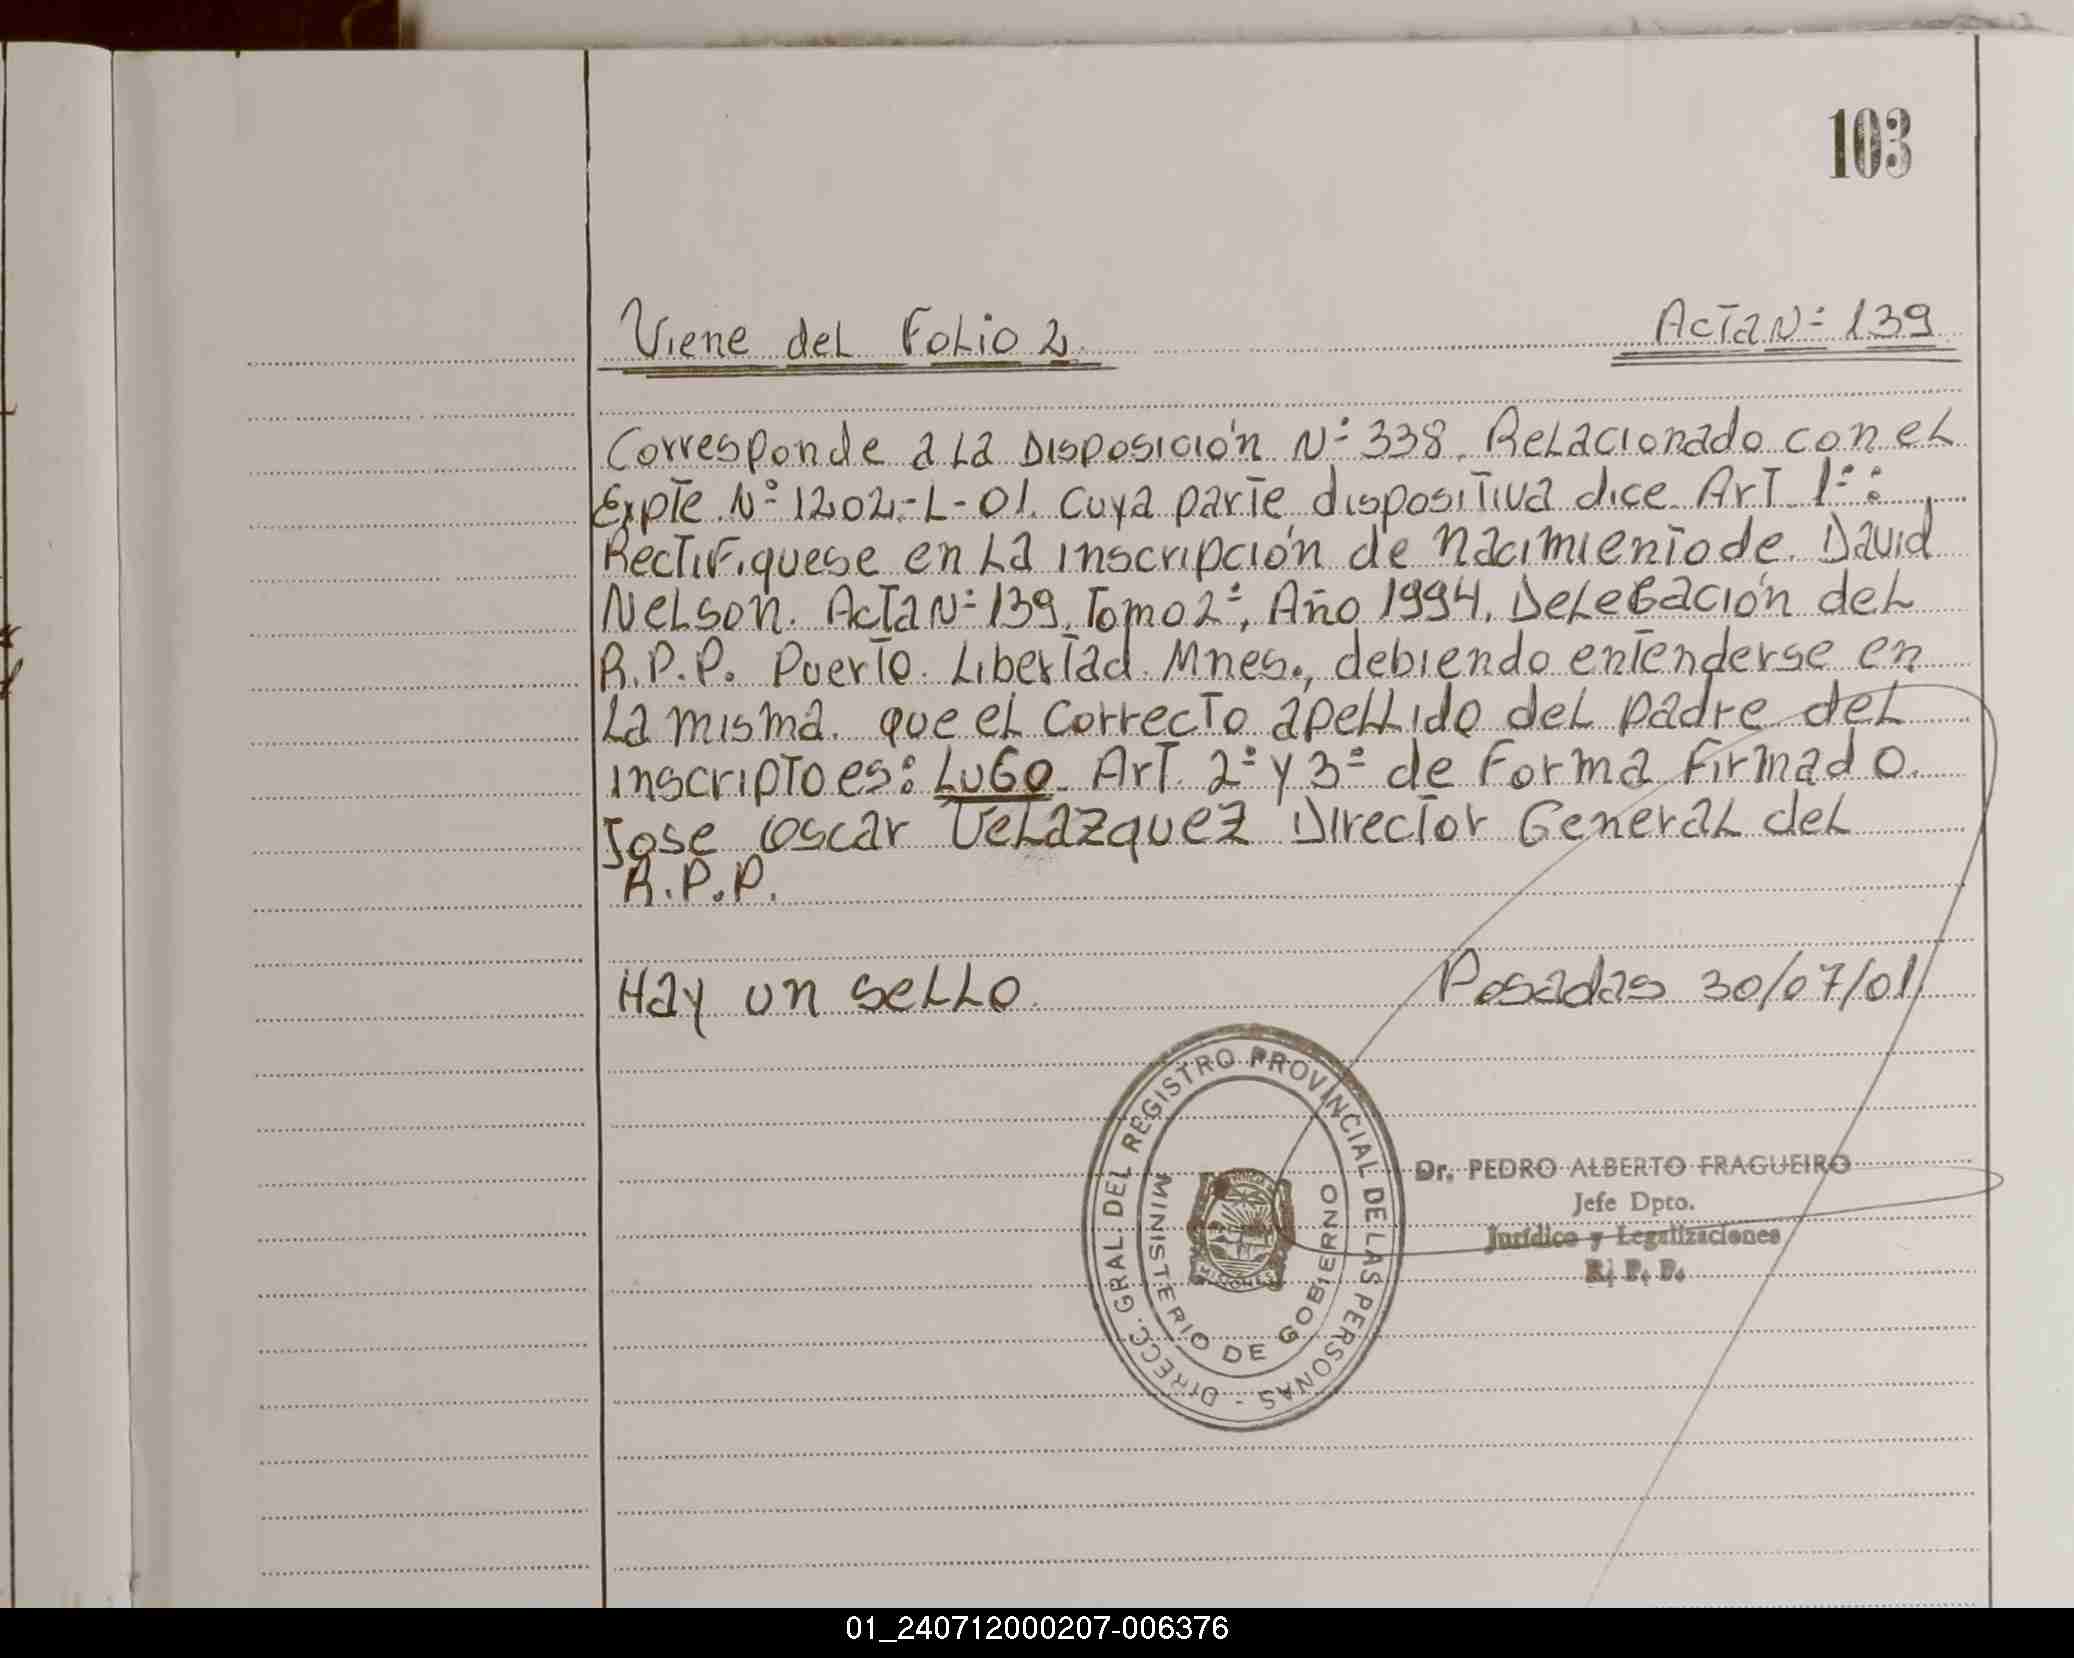 103
Viene del Folio 2. Acta Nº 139
Corresponde a la Disposición Nº 338. Relacionado con el
Expte. Nº 1202-L-01. Cuya parte dispositiva dice Art 1º:
Rectifíquese en la inscripción de nacimiento de. David
Nelson. Acta Nº 139. Tomo 2º, Año 1994. Delegación del
R.P.P. Puerto. Libertad. Mnes., debiendo entenderse en
la misma. que el correcto apellido del padre del
inscripto es: Lugo. Art. 2º y 3º de Forma Firmado.
Jose Oscar Velazquez Director General del
R.P.P.
Hay un sello. Posadas 30/07/01
DIRECC. GRAL. DEL REGISTRO PROVINCIAL DE LAS PERSONAS -
MINISTERIO DE GOBIERNO
MISIONES
Dr. PEDRO ALBERTO FRAGUEIRO
Jefe Dpto.
Jurídico y Legalizaciones
R. P. P.
01_240712000207-006376